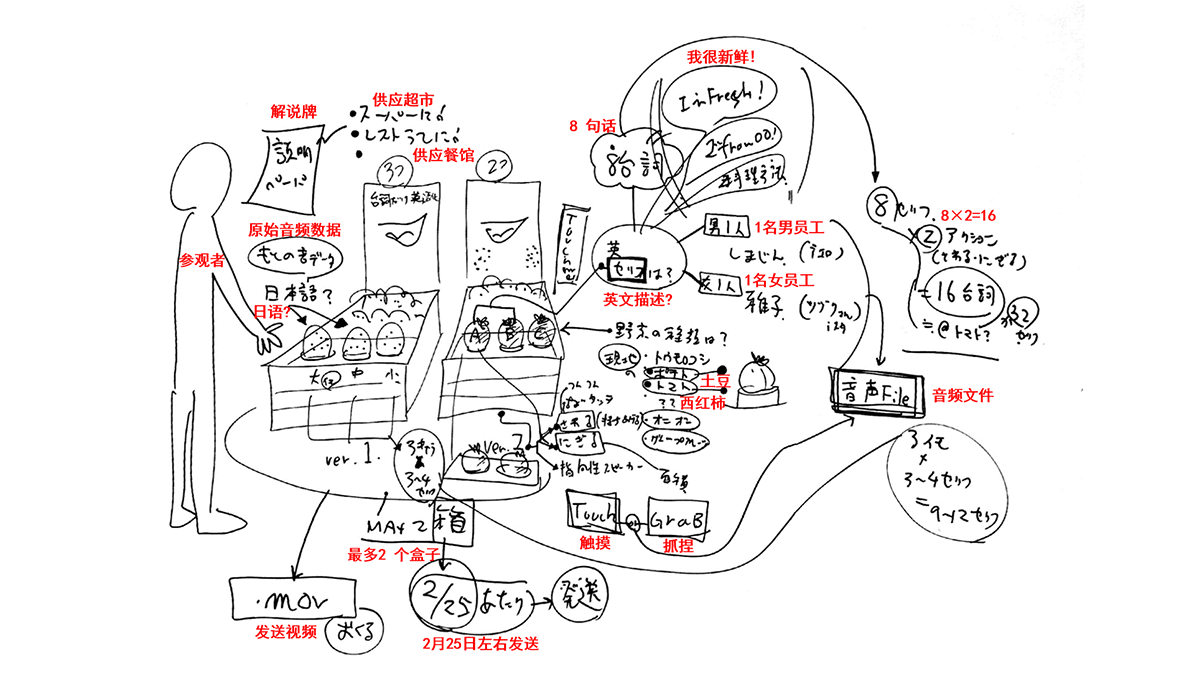 我很新鲜!
I'm Fresh!
供应超市
・スーパーに!
解说牌
・レストランに!
8 句话
8台詞
I'm from OO!
供应餐馆
説明
ペーパ
3つ
2つ
台詞だけ英語化
Touch me
8セリフ
8×2=16
×2アクション
男1人
1名男员工
しまじん
原始音频数据
もとの音データ
参观者
英
セリフは?
女1人
1名女员工
雅子
英文描述?
=16台詞
32
セリフ
≒@トマト?
日本語?
日语?
A
B
C
野菜の種類は?
現地の
・トウモロコシ
・ポテト
土豆
・トマト
西红柿
??
大
中
小
音声File
音频文件
さわる
・オニオン
にぎる
ver.2
ver. 1.
指向性スピーカー
3〜4
セリフ
3〜4セリフ
=9〜12セリフ
MAX 2
箱
最多2 个盒子
Touch
GraB
触摸
抓捏
.mov
发送视频
おくる
2/25
あたり
発送
2月25日左右发送